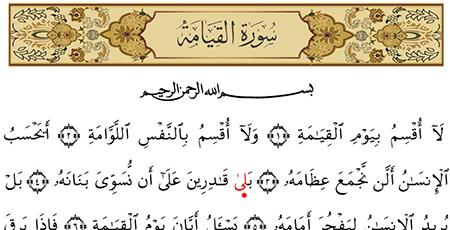 سُورَةُ القِيَامَةِ
بسم الله الرحمن الرحيم
لَآ أُقْسِمُ بِيَوْمِ ٱلْقِيَٰمَةِ ﴿١﴾ وَلَآ أُقْسِمُ بِٱلنَّفْسِ ٱللَّوَّامَةِ ﴿٢﴾ أَيَحْسَبُ
ٱلْإِنسَٰنُ أَلَّن نَّجْمَعَ عِظَامَهُۥ ﴿٣﴾ بَلَىٰ قَٰدِرِينَ عَلَىٰٓ أَن نُّسَوِّىَ بَنَانَهُۥ ﴿٤﴾ بَلْ
يُرِيدُ ٱلْإِنسَٰنُ لِيَفْجُرَ أَمَامَهُۥ ﴿٥﴾ يَسْـَٔلُ أَيَّانَ يَوْمُ ٱلْقِيَٰمَةِ ﴿٦﴾ فَإِذَا بَرِقَ